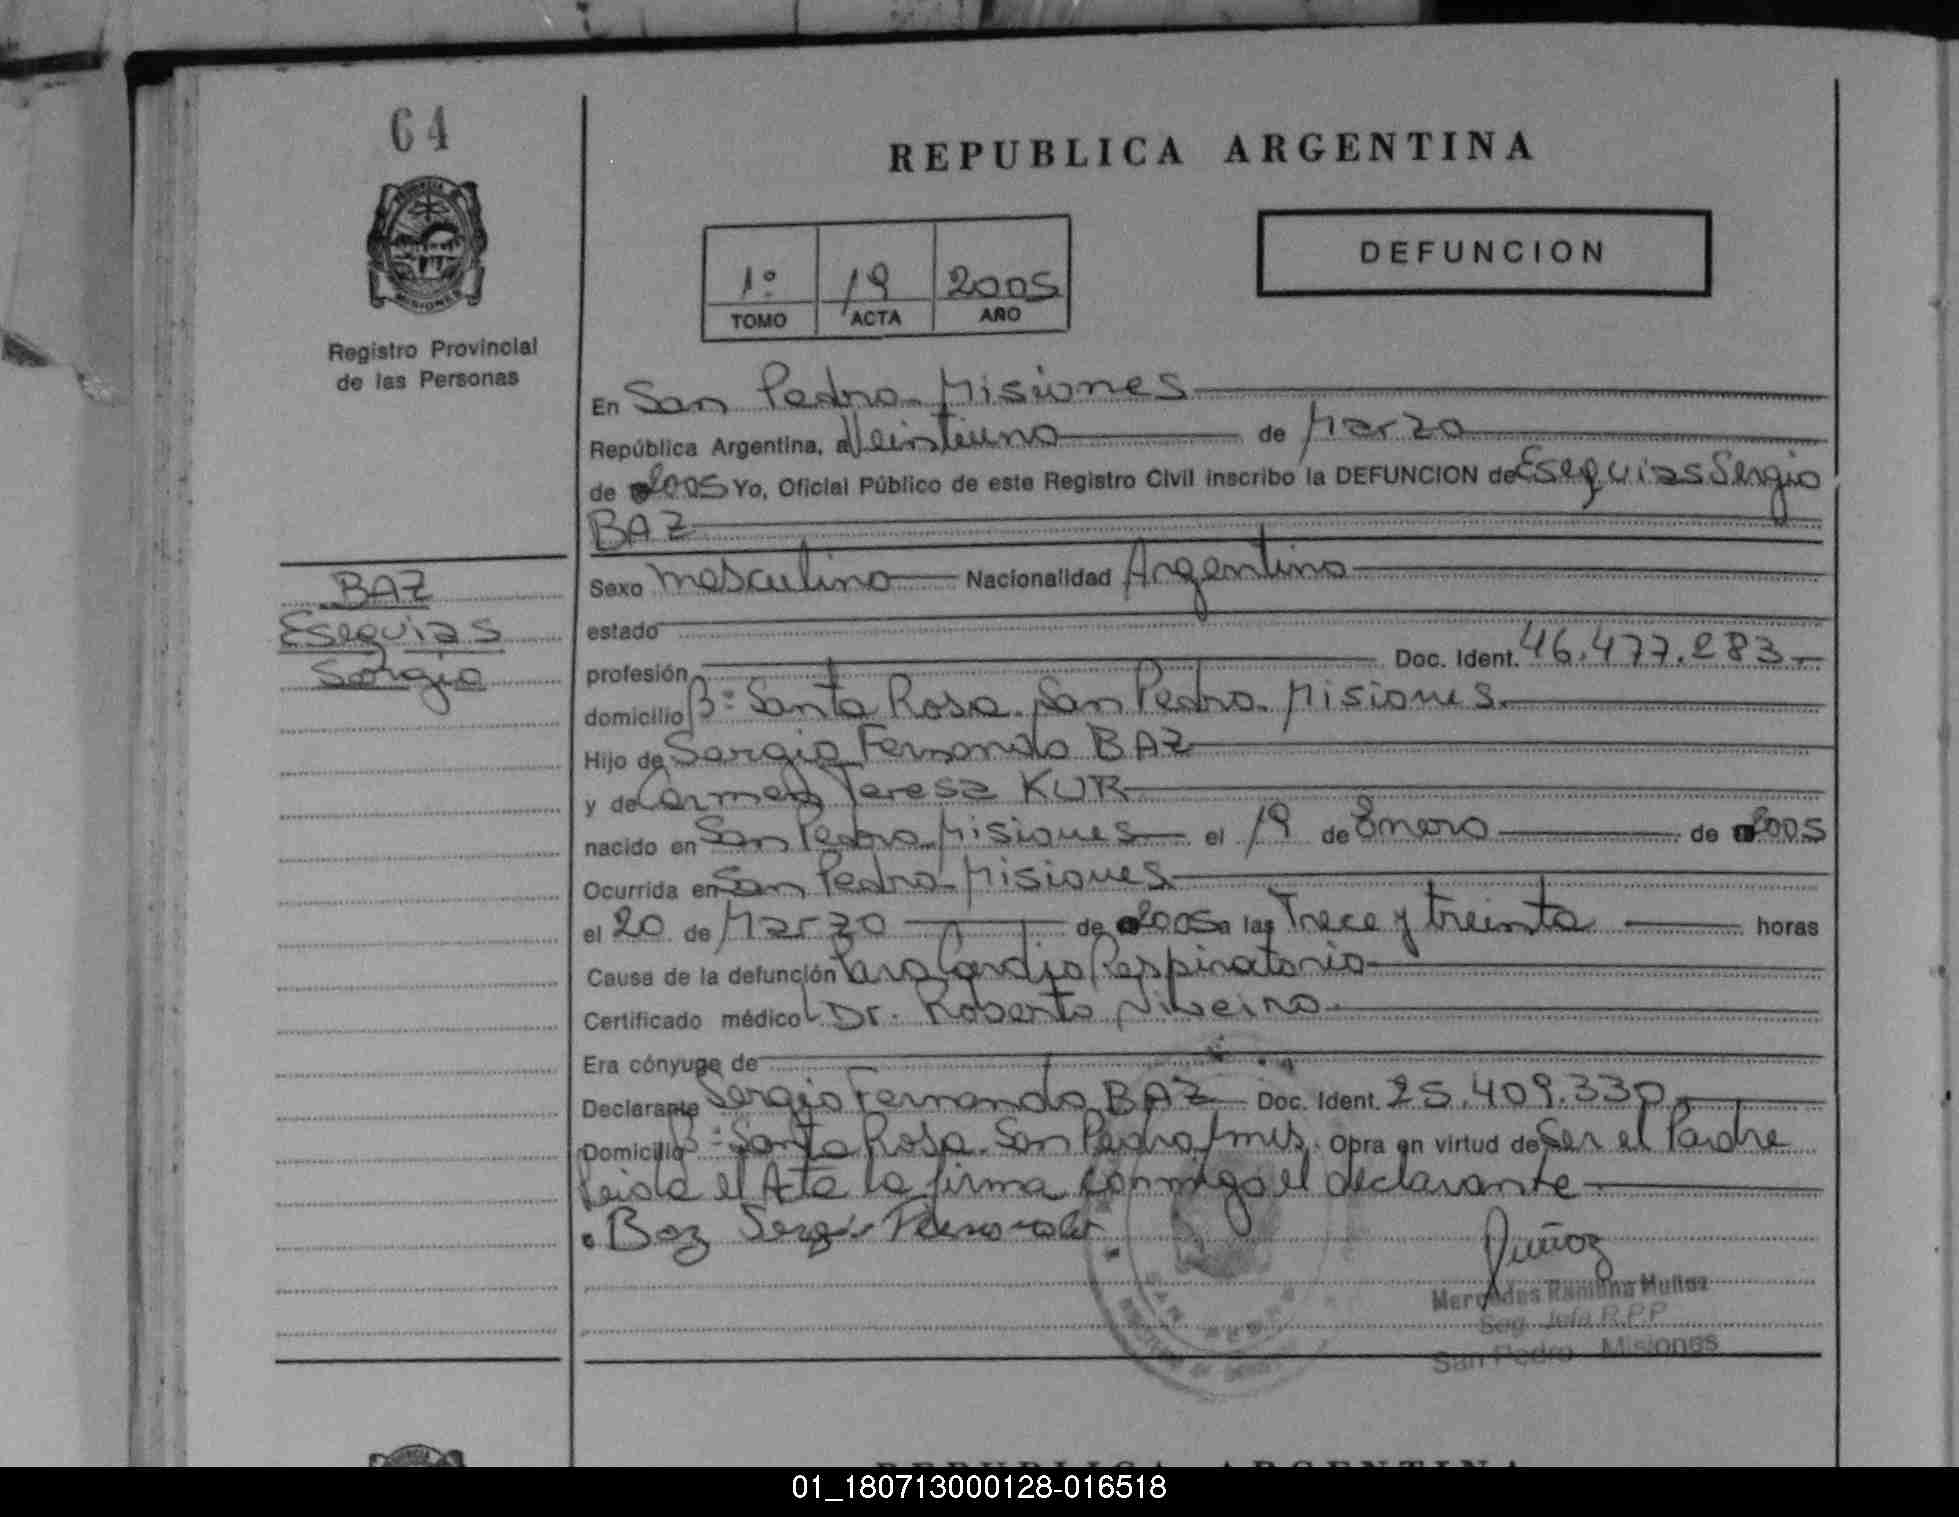 64
REPUBLICA ARGENTINA
DEFUNCION
1º 19 2005
TOMO ACTA AÑO
Registro Provincial
de las Personas
En San Pedro. Misiones
República Argentina, a Veintiuno de Marzo
de 2005 Yo, Oficial Público de este Registro Civil inscribo la DEFUNCION de Esequias Sergio
BAZ
BAZ
Esequias
Sergio
Sexo masculino Nacionalidad Argentino
estado
profesión Doc. Ident. 46.477.283.-
domicilio Bº Santa Rosa. San Pedro. Misiones.
Hijo de Sergio Fernando BAZ
y de Carmen Teresa KUR
nacido en San Pedro. Misiones el 19 de Enero de 2005
Ocurrida en San Pedro. Misiones
el 20 de Marzo de 2005 a las Trece y treinta horas
Causa de la defunción Paro Cardio Respiratorio
Certificado médico Dr. Roberto
Era cónyuge de
Declarante Sergio Fernando BAZ Doc. Ident. 25.409.330.
Domicilio Bº Santa Rosa. San Pedro, Mnes. Obra en virtud de Ser el Padre
leida el Acta la firma conmigo el declarante
Baz Sergio Fernando
Muñoz
Mercedes Ramona Muñoz
Jefa R.P.P
San Pedro - Misiones
REPUBLICA ARGENTINA
01_180713000128-016518